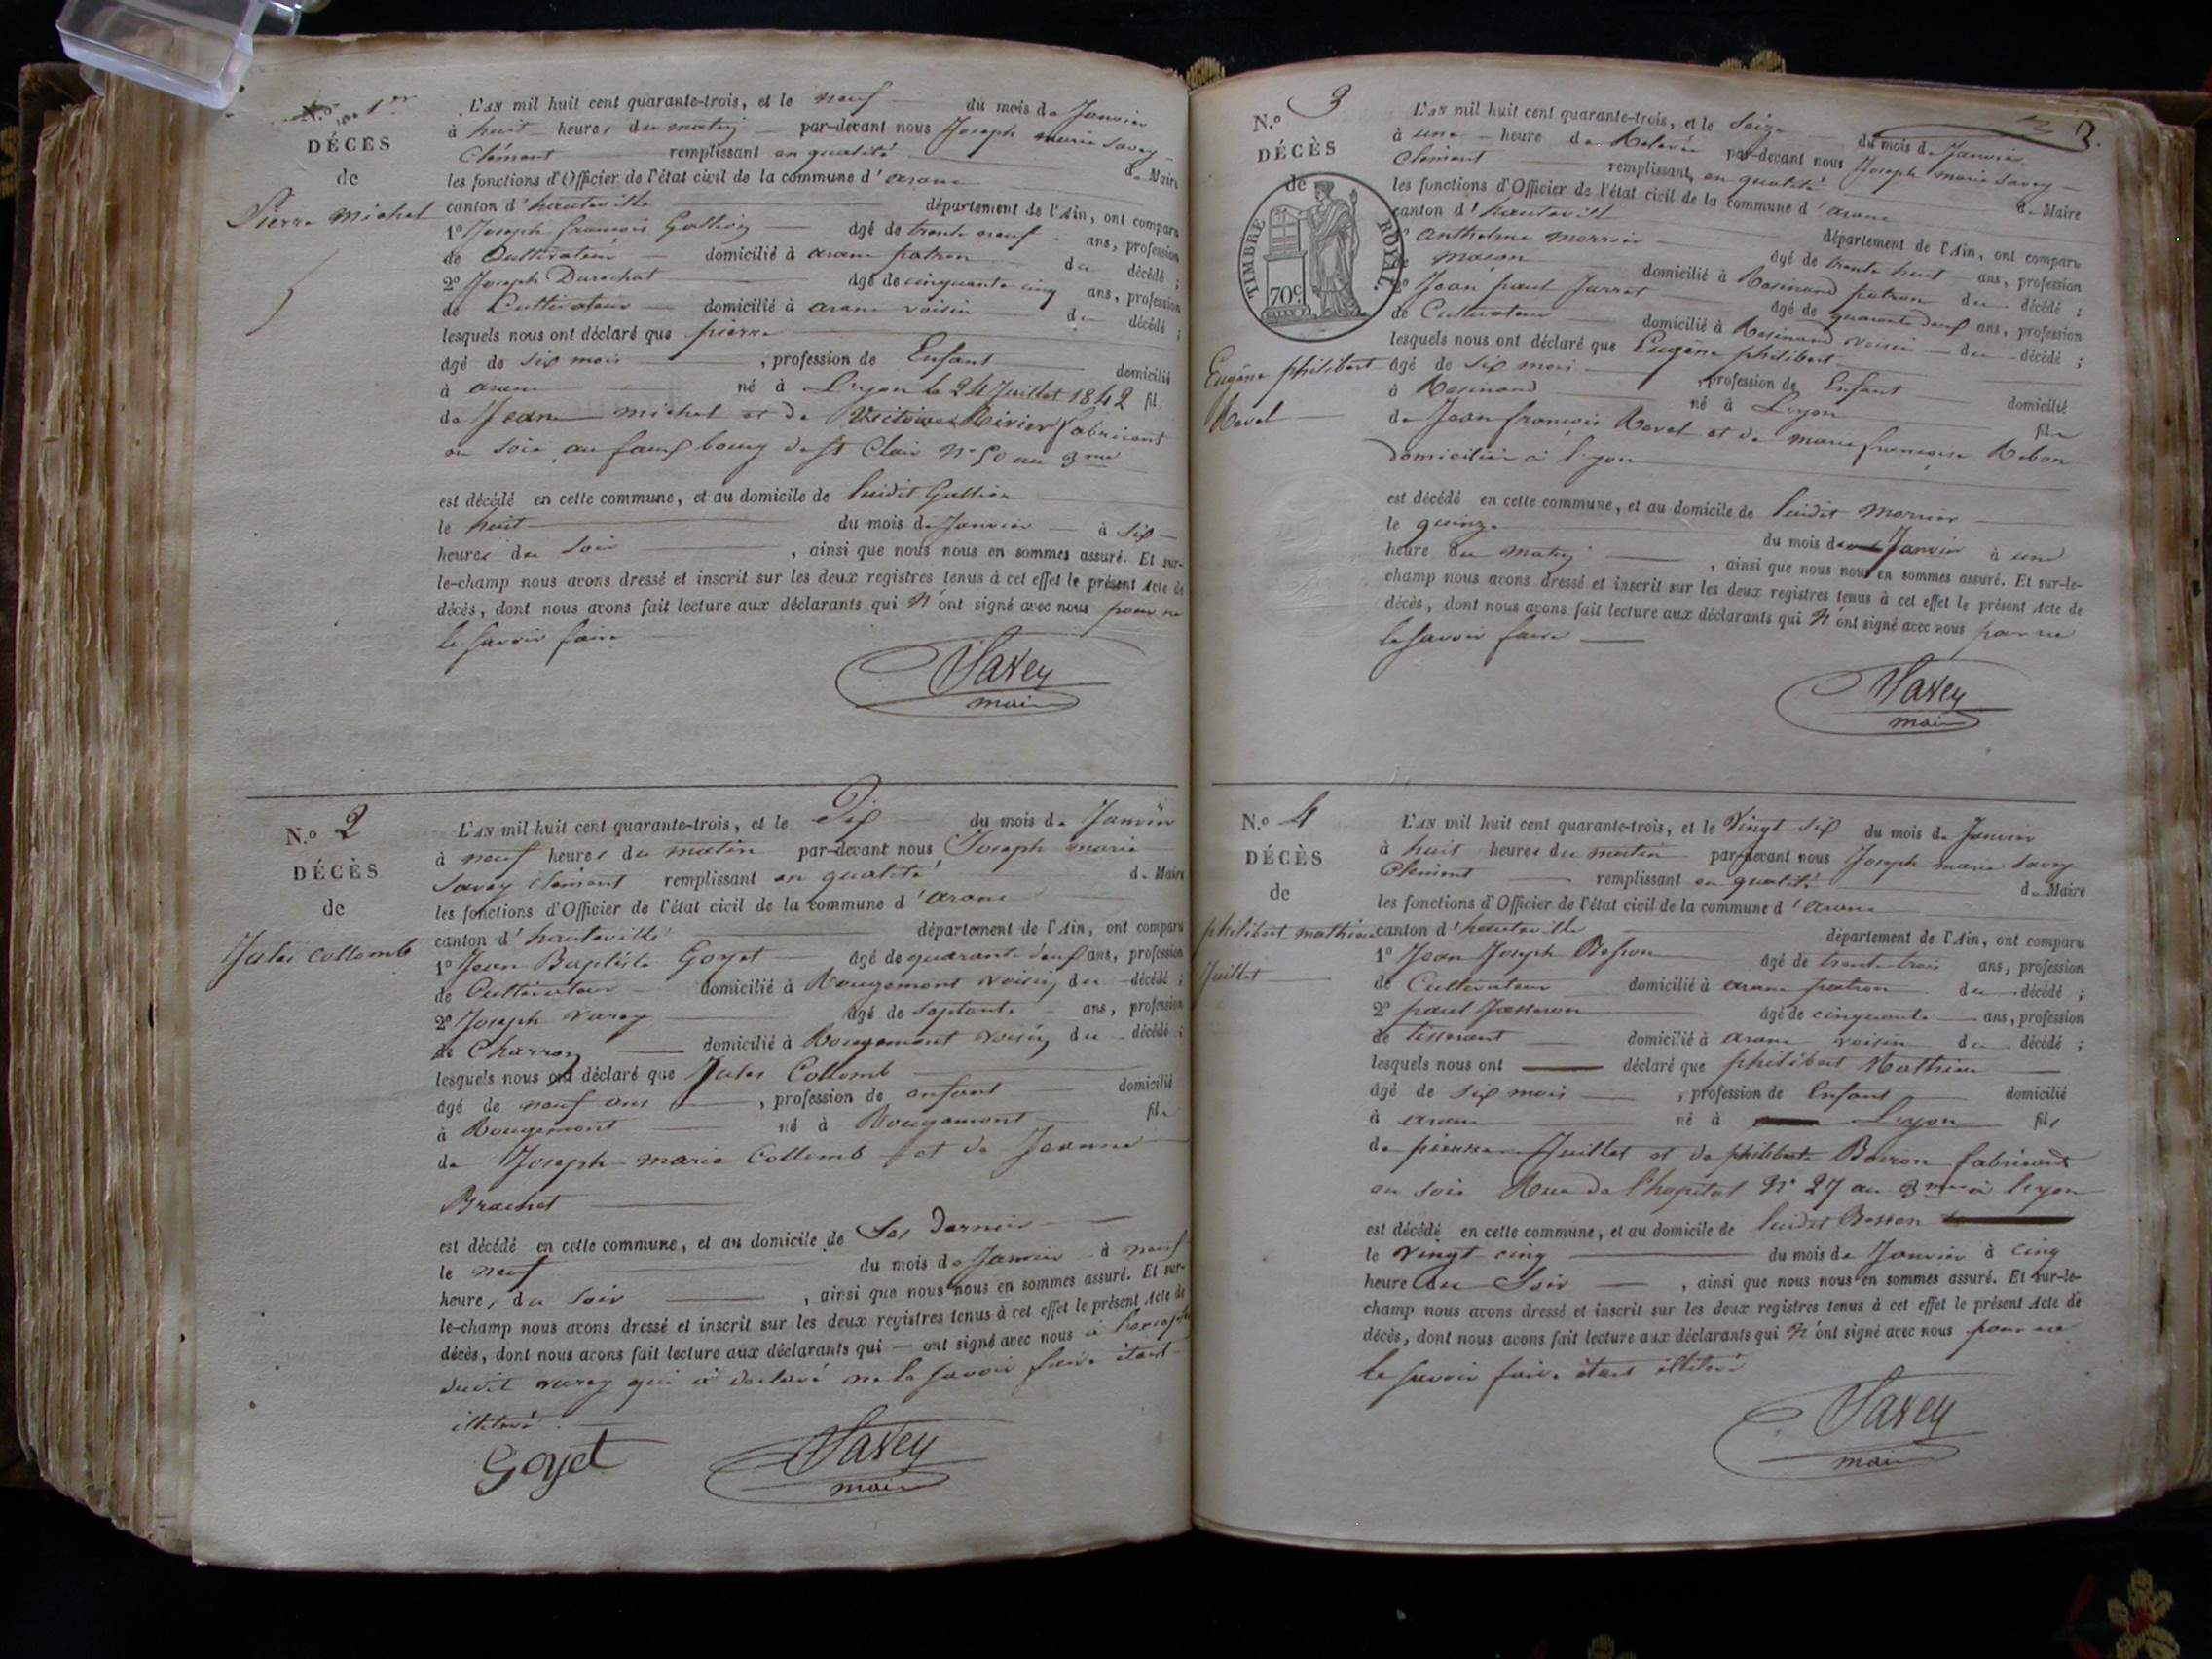 N.o 1er
DÉCÈS
de
Pierre Michel
L'AN mil huit cent quarante-trois, et le neuf du mois de Janvier
à huit heures du matin par-devant nous Joseph marie Savey
Clément remplissant en qualité de Maire
les fonctions d'Officier de l'état civil de la commune d'arane
canton d'hauteville département de l'Ain, ont comparu
1o Joseph françois Gallion âgé de trente neuf ans, profession
de Cultivateur domicilié à arane patron du décédé ;
2o Joseph Durochat âgé de cinquante cinq ans, profession
de Cultivateur domicilié à arane voisin du décédé ;
lesquels nous ont déclaré que pierre
âgé de six mois , profession de Enfant domicilié
à arane né à Lyon le 24 Juillet 1842 fils
de Jean michel et de Victoire Rivier fabricant
en soie au faux bourg de St Clair No 50 au 3me
est décédé en cette commune, et au domicile de luidit Gallion
le huit du mois de Janvier à six
heures du soir , ainsi que nous nous en sommes assuré. Et sur-
le-champ nous avons dressé et inscrit sur les deux registres tenus à cet effet le présent Acte de
décès, dont nous avons fait lecture aux déclarants qui n'ont signé avec nous pour ne
le savoir faire
Savey
maire
N.o 2
DÉCÈS
de
Jules Collomb
L'AN mil huit cent quarante-trois, et le Dix du mois de Janvier
à neuf heures du matin par-devant nous Joseph marie
Savey Clément remplissant en qualité de Maire
les fonctions d'Officier de l'état civil de la commune d'arane
canton d'hauteville département de l'Ain, ont comparu
1o Jean Baptiste Goyet âgé de quarante deux ans, profession
de Cultivateur domicilié à Rougemont voisin du décédé ;
2o Joseph varey âgé de septante ans, profession
de Charron domicilié à Rougemont voisin du décédé ;
lesquels nous ont déclaré que Jules Collomb
âgé de neuf ans , profession de enfant domicilié
à Rougemont né à Rougemont fils
de Joseph marie Collomb et de Jeanne
Brachet
est décédé en cette commune, et au domicile de Ses Derniers
le neuf du mois de Janvier à neuf
heures du soir , ainsi que nous nous en sommes assuré. Et sur-
le-champ nous avons dressé et inscrit sur les deux registres tenus à cet effet le présent Acte de
décès, dont nous avons fait lecture aux déclarants qui ont signé avec nous à l'exception
dudit varey qui a déclaré ne le savoir faire étant
illitéré.
Goyet
Savey
maire
3.
N.o 3
DÉCÈS
de
TIMBRE ROYAL.
70c
Eugène philibert
Revel
L'AN mil huit cent quarante-trois, et le Seize du mois de Janvier
à une heure de Relevée par-devant nous Joseph marie Savey
Clément remplissant en qualité de Maire
les fonctions d'Officier de l'état civil de la commune d'arane
canton d'hauteville département de l'Ain, ont comparu
anthelme mornier âgé de trente huit ans, profession
de macon domicilié à Résinand patron du décédé ;
2o Jean paul Jarret âgé de quarante deux ans, profession
de Cultivateur domicilié à Résinand voisin du décédé ;
lesquels nous ont déclaré que Eugène philibert
âgé de six mois , profession de Enfant domicilié
à Résinand né à Lyon fils
de Jean françois Revel et de marie françoise Rebon
domiciliés à lyon
est décédé en cette commune, et au domicile de luidit mornier
le quinze du mois de Janvier à une
heure du matin , ainsi que nous nous en sommes assuré. Et sur-le-
champ nous avons dressé et inscrit sur les deux registres tenus à cet effet le présent Acte de
décès, dont nous avons fait lecture aux déclarants qui n'ont signé avec nous pour ne
le savoir faire
Savey
maire
N.o 4
DÉCÈS
de
philibert mathieu
Juillet
L'AN mil huit cent quarante-trois, et le Vingt six du mois de Janvier
à huit heures du matin par-devant nous Joseph marie Savey
Clément remplissant en qualité de Maire
les fonctions d'Officier de l'état civil de la commune d'arane
canton d'hauteville département de l'Ain, ont comparu
1o Jean Joseph Besson âgé de trente trois ans, profession
de Cultivateur domicilié à arane patron du décédé ;
2o paul Jasseron âgé de cinquante ans, profession
de tisserant domicilié à arane voisin du décédé ;
lesquels nous ont déclaré que philibert Mathieu
âgé de six mois , profession de Enfant domicilié
à arane né à Lyon fils
de pierre Juillet et de philiberte Boiron fabricant
en soie Rue de l'hopital No 27 au 3me à lyon
est décédé en cette commune, et au domicile de luidit Besson
le vingt cinq du mois de Janvier à cinq
heure du Soir , ainsi que nous nous en sommes assuré. Et sur-le-
champ nous avons dressé et inscrit sur les deux registres tenus à cet effet le présent Acte de
décès, dont nous avons fait lecture aux déclarants qui n'ont signé avec nous pour ne
le savoir faire étant illitéré
Savey
maire